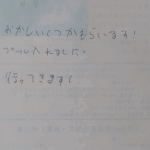 おかしいくつかもらいます!
プール入れました。
待ってきますく